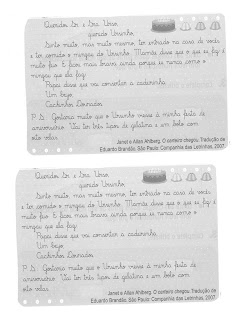 Queridos Sr. e Sra. Urso,
querido Ursinho,
Sinto muito, mas muito mesmo, ter entrado na casa de vocês
e ter comido o mingau do Ursinho. Mamãe disse que o que eu fiz é
muito feio. E ficou mais brava ainda porque eu nunca como o
mingau que ela faz.
Papai disse que vai consertar a cadeirinha.
Um beijo,
Cachinhos Dourados
P. S. Gostaria muito que o Ursinho viesse à minha festa de
aniversário. Vai ter três tipos de gelatina e um bolo com
oito velas.
Janet e Allan Ahlberg. O carteiro chegou. Tradução de
Eduardo Brandão. São Paulo: Companhia das Letrinhas, 2007.
Queridos Sr. e Sra. Urso,
querido Ursinho,
Sinto muito, mas muito mesmo, ter entrado na casa de vocês
e ter comido o mingau do Ursinho. Mamãe disse que o que eu fiz é
muito feio. E ficou mais brava ainda porque eu nunca como o
mingau que ela faz.
Papai disse que vai consertar a cadeirinha.
Um beijo,
Cachinhos Dourados
P. S. Gostaria muito que o Ursinho viesse à minha festa de
aniversário. Vai ter três tipos de gelatina e um bolo com
oito velas.
Janet e Allan Ahlberg. O carteiro chegou. Tradução de
Eduardo Brandão. São Paulo: Companhia das Letrinhas, 2007.